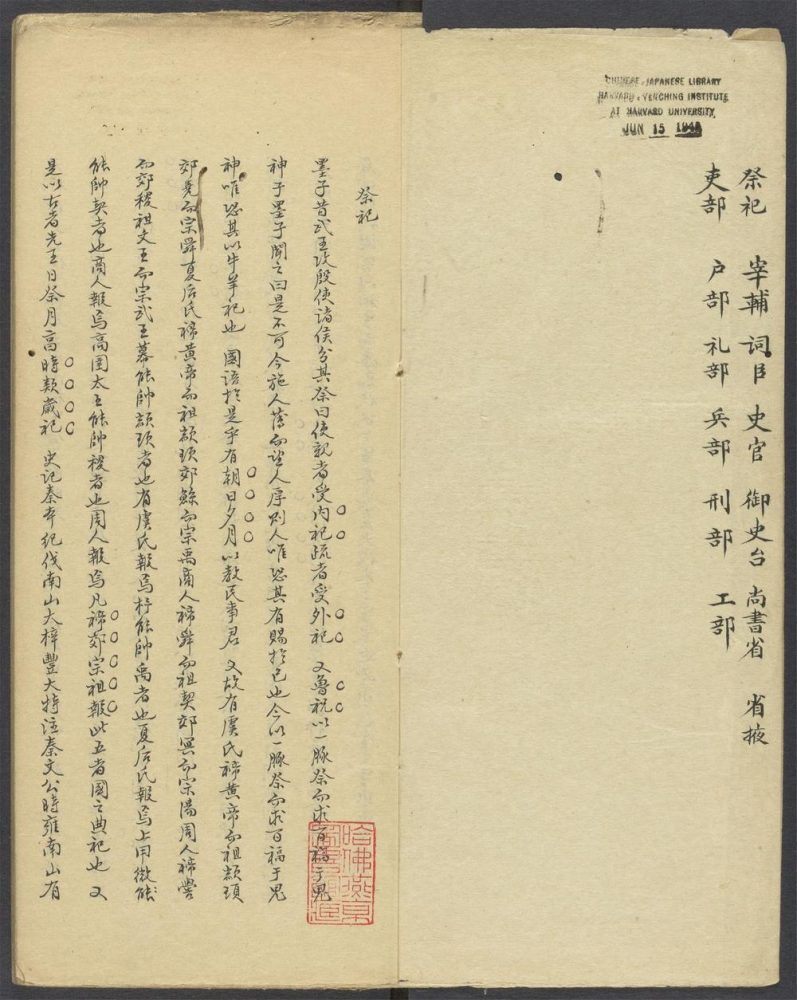 CHINESE-JAPANESE LIBRARY
HARVARD-YENCHING INSTITUTE
AT HARVARD UNIVERSITY
JUN 15 194
祭祀 宰輔 詞臣 史官 御史台 尚書省 省掖
吏部 戶部 礼部 兵部 刑部 工部
祭祀
墨子昔武王攻殷使諸侯分其祭曰使親者受內祀疏者受外祀 又魯祝以一豚祭而求百福于鬼
神子墨子聞之曰是不可今施人薄而望人厚則人唯恐其有賜於己也今以一豚祭而求百福于鬼
神唯恐其以牛羊祀也 國語於是乎有朝日夕月以教民事君 又故有虞氏禘黃帝而祖顓頊
郊堯而宗舜夏后氏禘黃帝而祖顓頊郊鯀而宗禹商人禘舜而祖契郊冥而宗湯周人禘嚳
而郊稷祖文王而宗武王幕能帥顓頊者也有虞氏報焉杼能帥禹者也夏后氏報焉上甲微能
能帥契者也商人報焉高圉太王能帥稷者也周人報焉凡禘郊宗祖報此五者國之典祀也 又
是以古者先王日祭月享時類歲祀 史記秦本紀伐南山大梓豐大特注秦文公時雍南山有
哈佛燕京